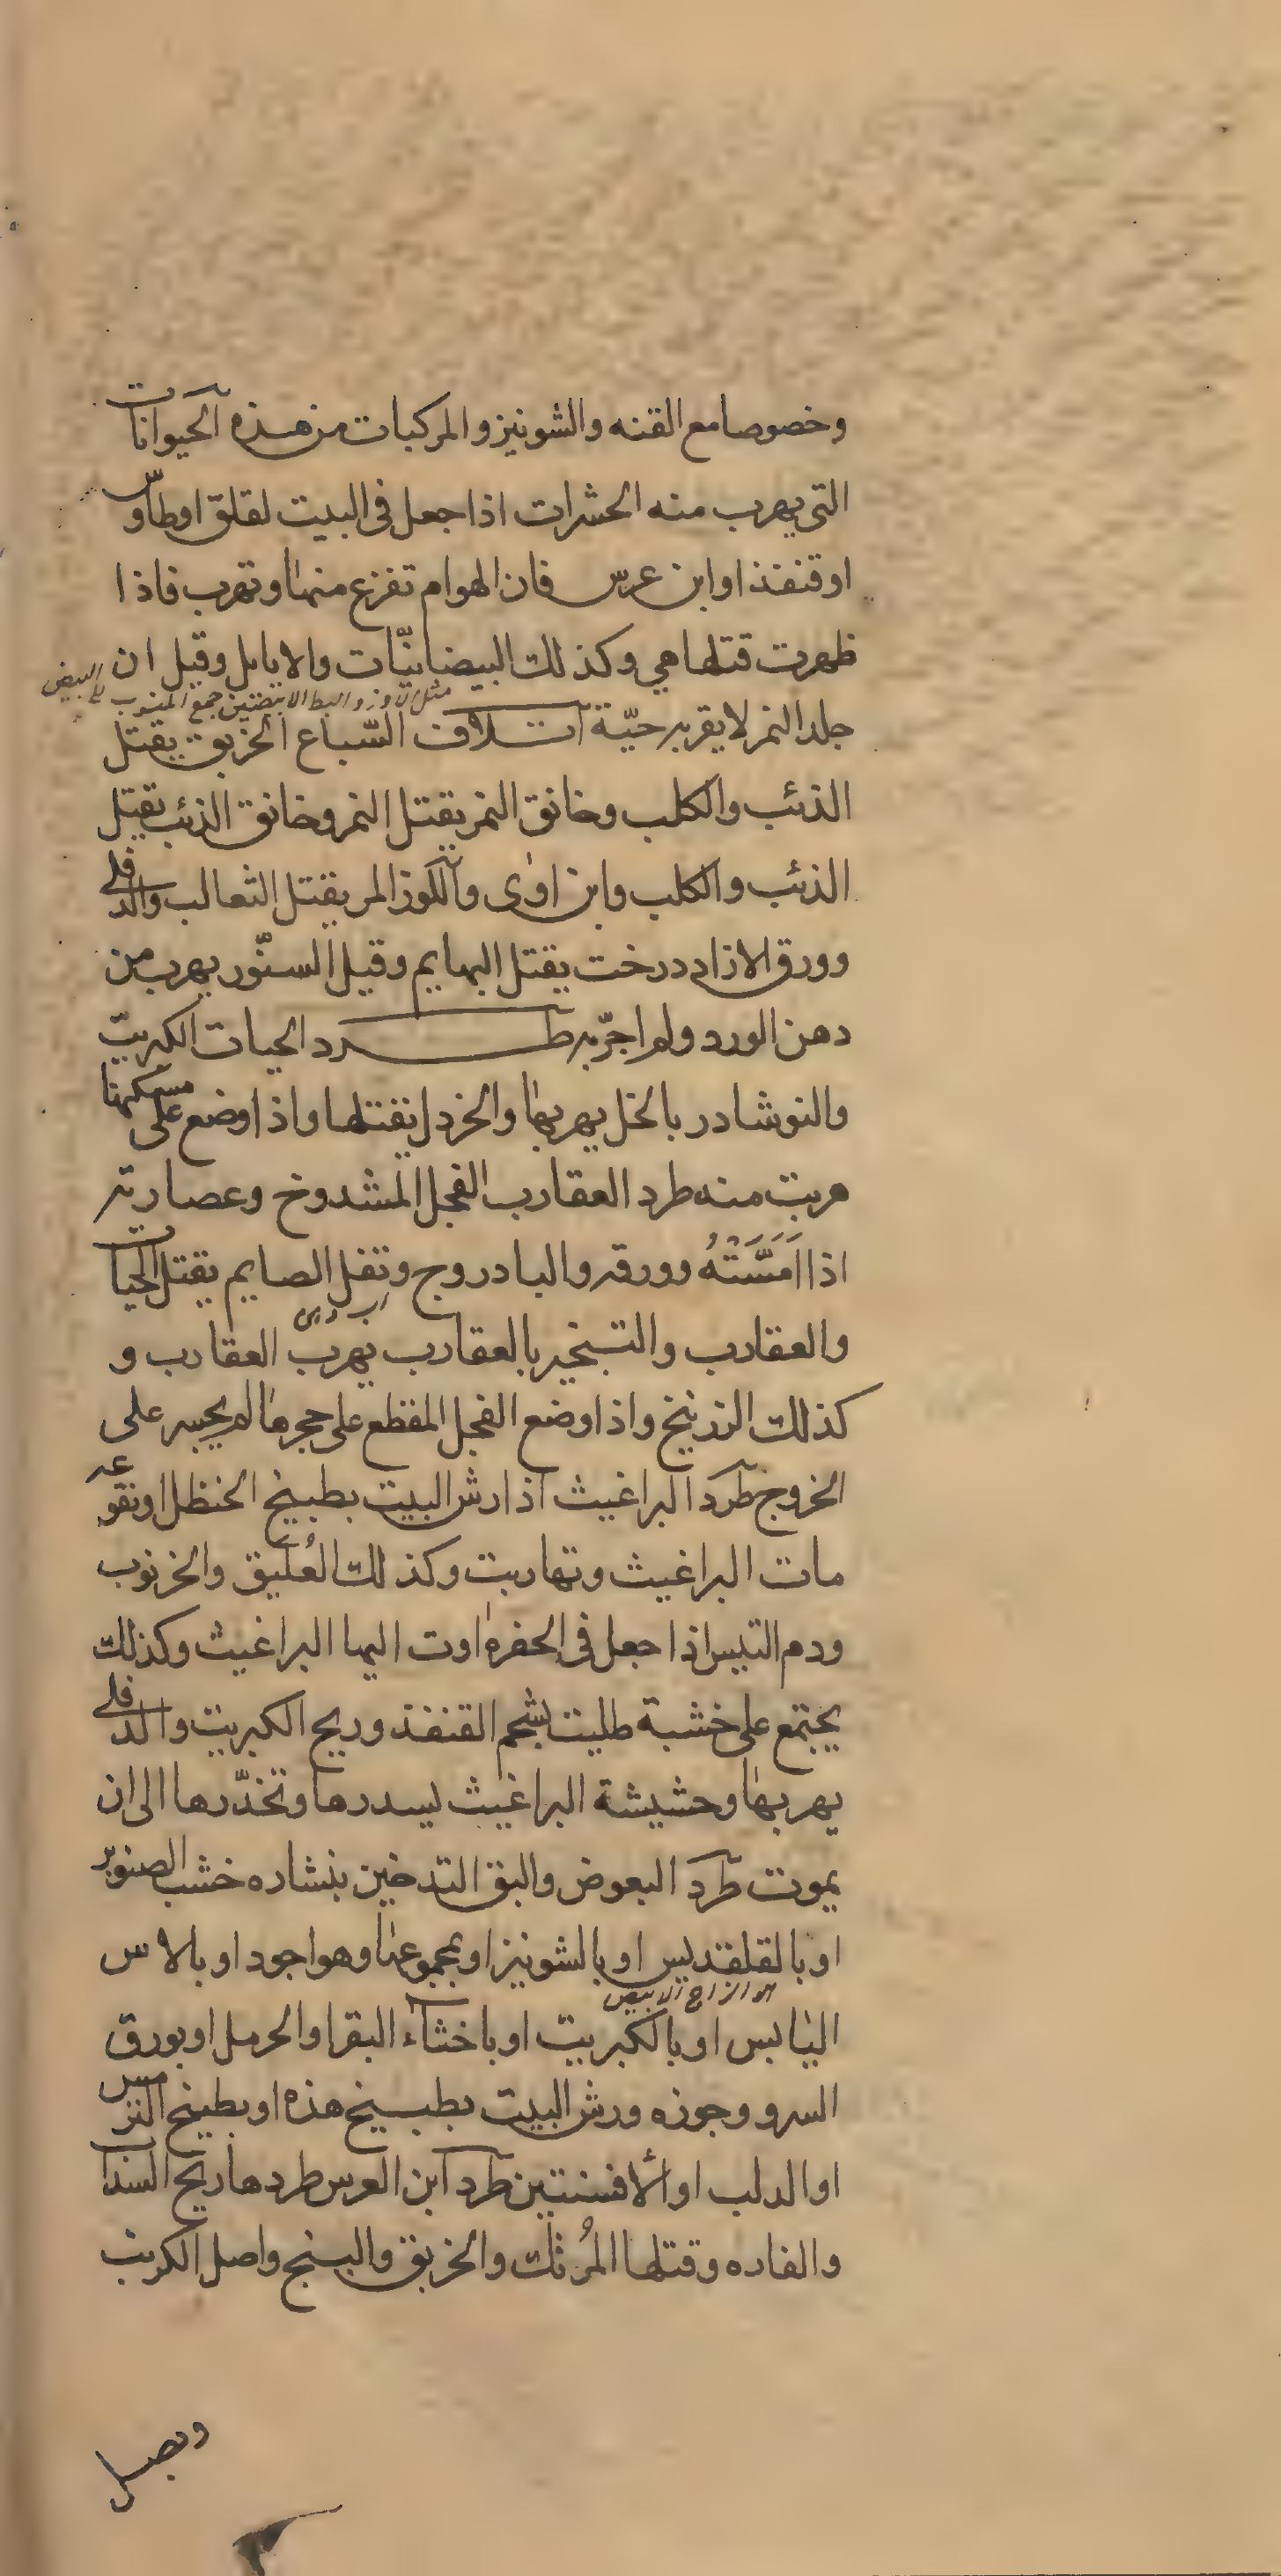 وخصوصا مع القنه والشونيز والمركبات من هذه الحيوانات
التى يهرب منه الحشرات اذا جعل فى البيت لقلق اوطاوس
اوقنفذ اوابن عرس فان الهوام تفزع منها وتهرب فاذا
ظهرت قتلها هي وكذلك البيضانيّات والايايل وقيل ان
مثل الاوز والبط الابيضين جمع المنسوب الى البيض
جلد النمر لايقربه حيّة اتلاف السّباع الخربق يقتل
الذئب والكلب وخانق النمر يقتل النمر وخانق الذئب يقتل
الذئب والكلب وابن اوى واللوز المر يقتل الثعالب والدفلى
وورق الازاددرخت يقتل البهايم وقيل السنّور يهرب من
دهن الورد ولم اجرّبه طرد الحيات الكبريت
والنوشادر بالخل يهربها والخردل يقتلها واذا وضع على مسكنها
هربت منه طرد العقارب الفجل المشدوخ وعصارته
اذا اَمَسَّتْهُ وورقه والبادروج وتفل الصايم يقتل الحيات
والعقارب والتبخير بالعقارب يهرب العقارب و
كذلك الزرنيخ واذا وضع الفجل المقطع على حجرها لم يجسر على
الخروج طرد البراغيث اذا رش البيت بطبيخ الحنظل اونقوعه
مات البراغيث وتهاربت وكذلك العُلَّيق والخرنوب
ودم التيس اذا جعل فى الحفرة اوت اليها البراغيث وكذلك
يجتمع على خشبة طليت بشحم القنفذ وريح الكبريت والدفلى
يهربها وحشيشة البراغيث يسدرها وتخدّرها الى ان
يموت طرد البعوض والبق التدخين بنشاره خشب الصنوبر
اوبالقلقديس اوبالشونيز اوبمجموعها وهواجود اوبالاس
هو الزاج الابيض
اليابس اوبالكبريت اوباخثاء البقر اوالحرمل اوبورق
السرو وجوزه ورش البيت بطبيخ هذه اوبطبيخ الترمس
اوالدلب اوالافسنتين طرد ابن العرس طردها ريح السذاب
والفاره وقتلها المُرتك والخربق والبنج واصل الكرنب
وبصل